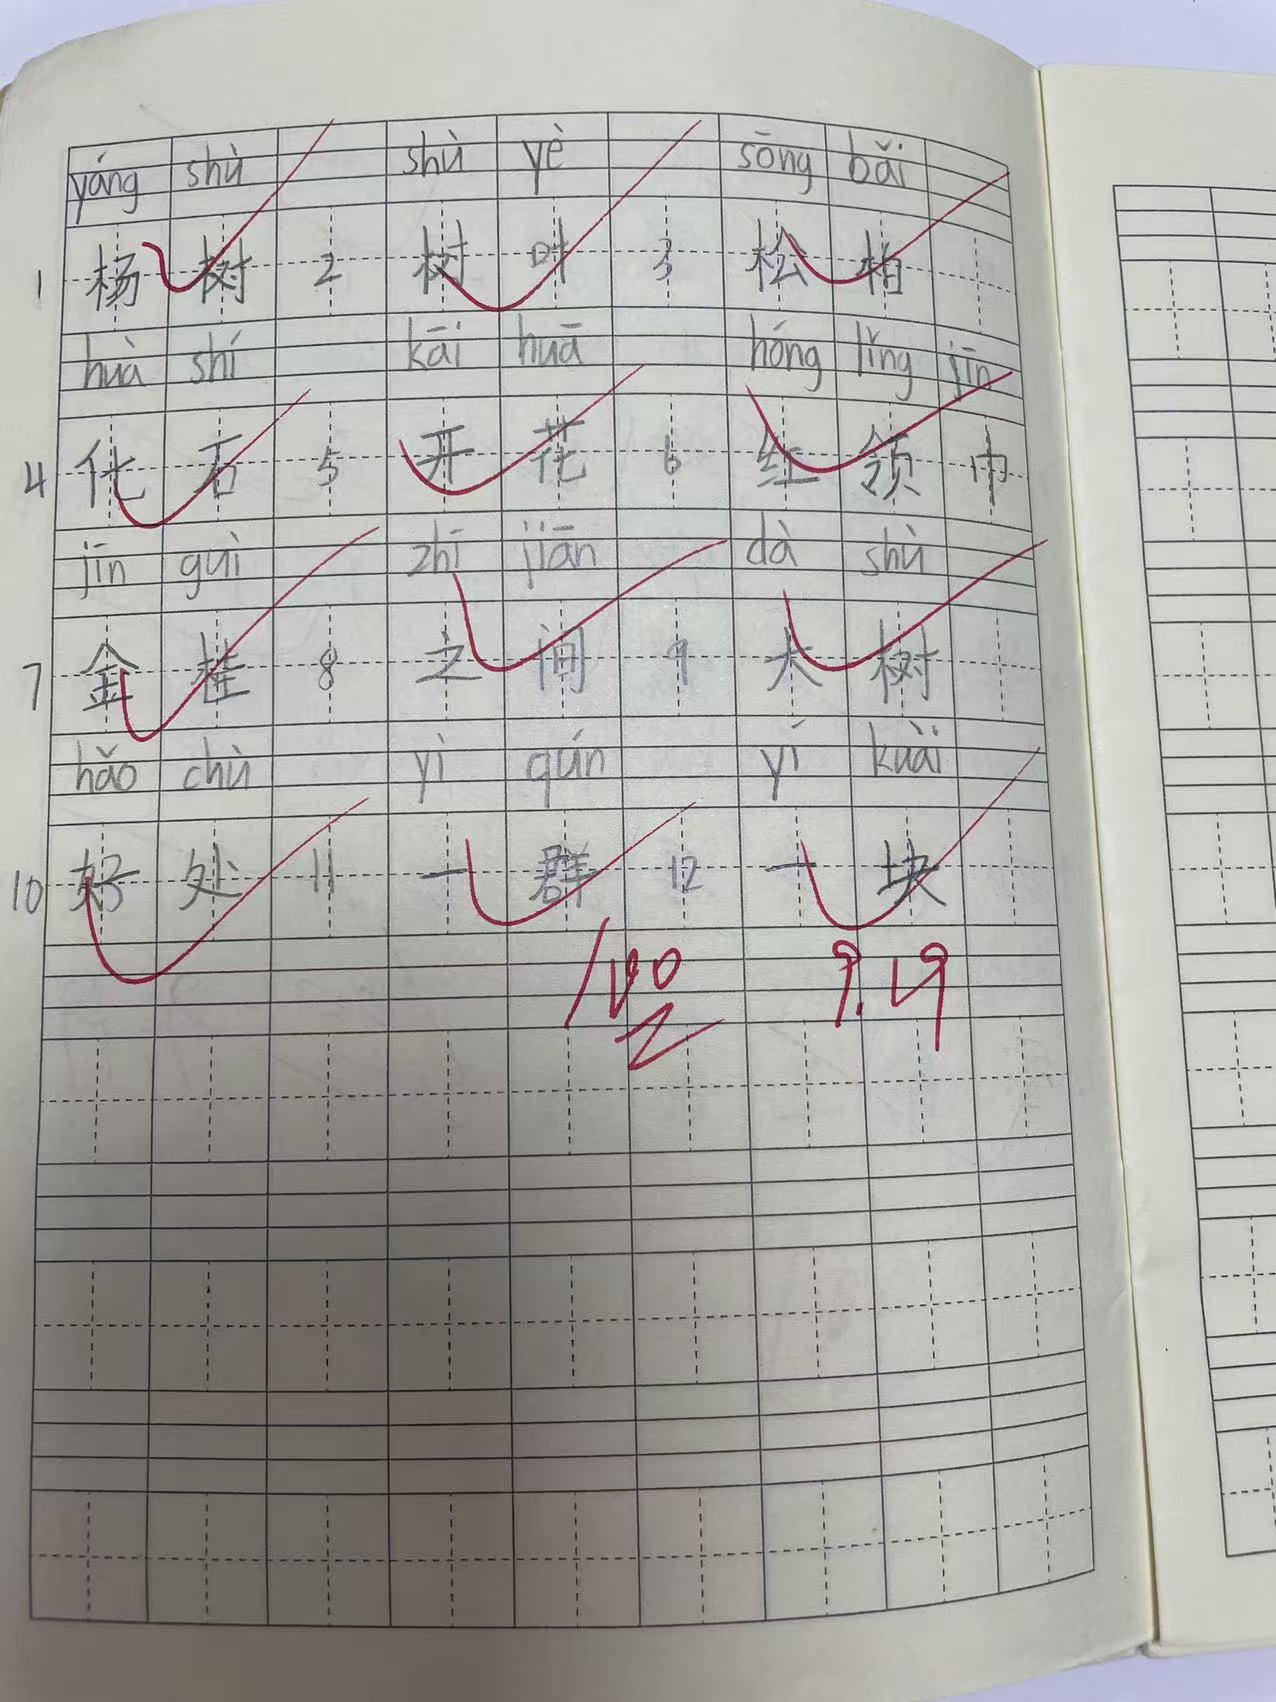 yáng shù shù yè sōng bǎi
1 杨树 2 树叶 3 松柏
huà shí kāi huā hóng lǐng jīn
4 化石 5 开花 6 红领巾
jīn guì zhī jiān dà shù
7 金桂 8 之间 9 大树
hǎo chù yì qún yí kuài
10 好处 11 一群 12 一块
100 9.19